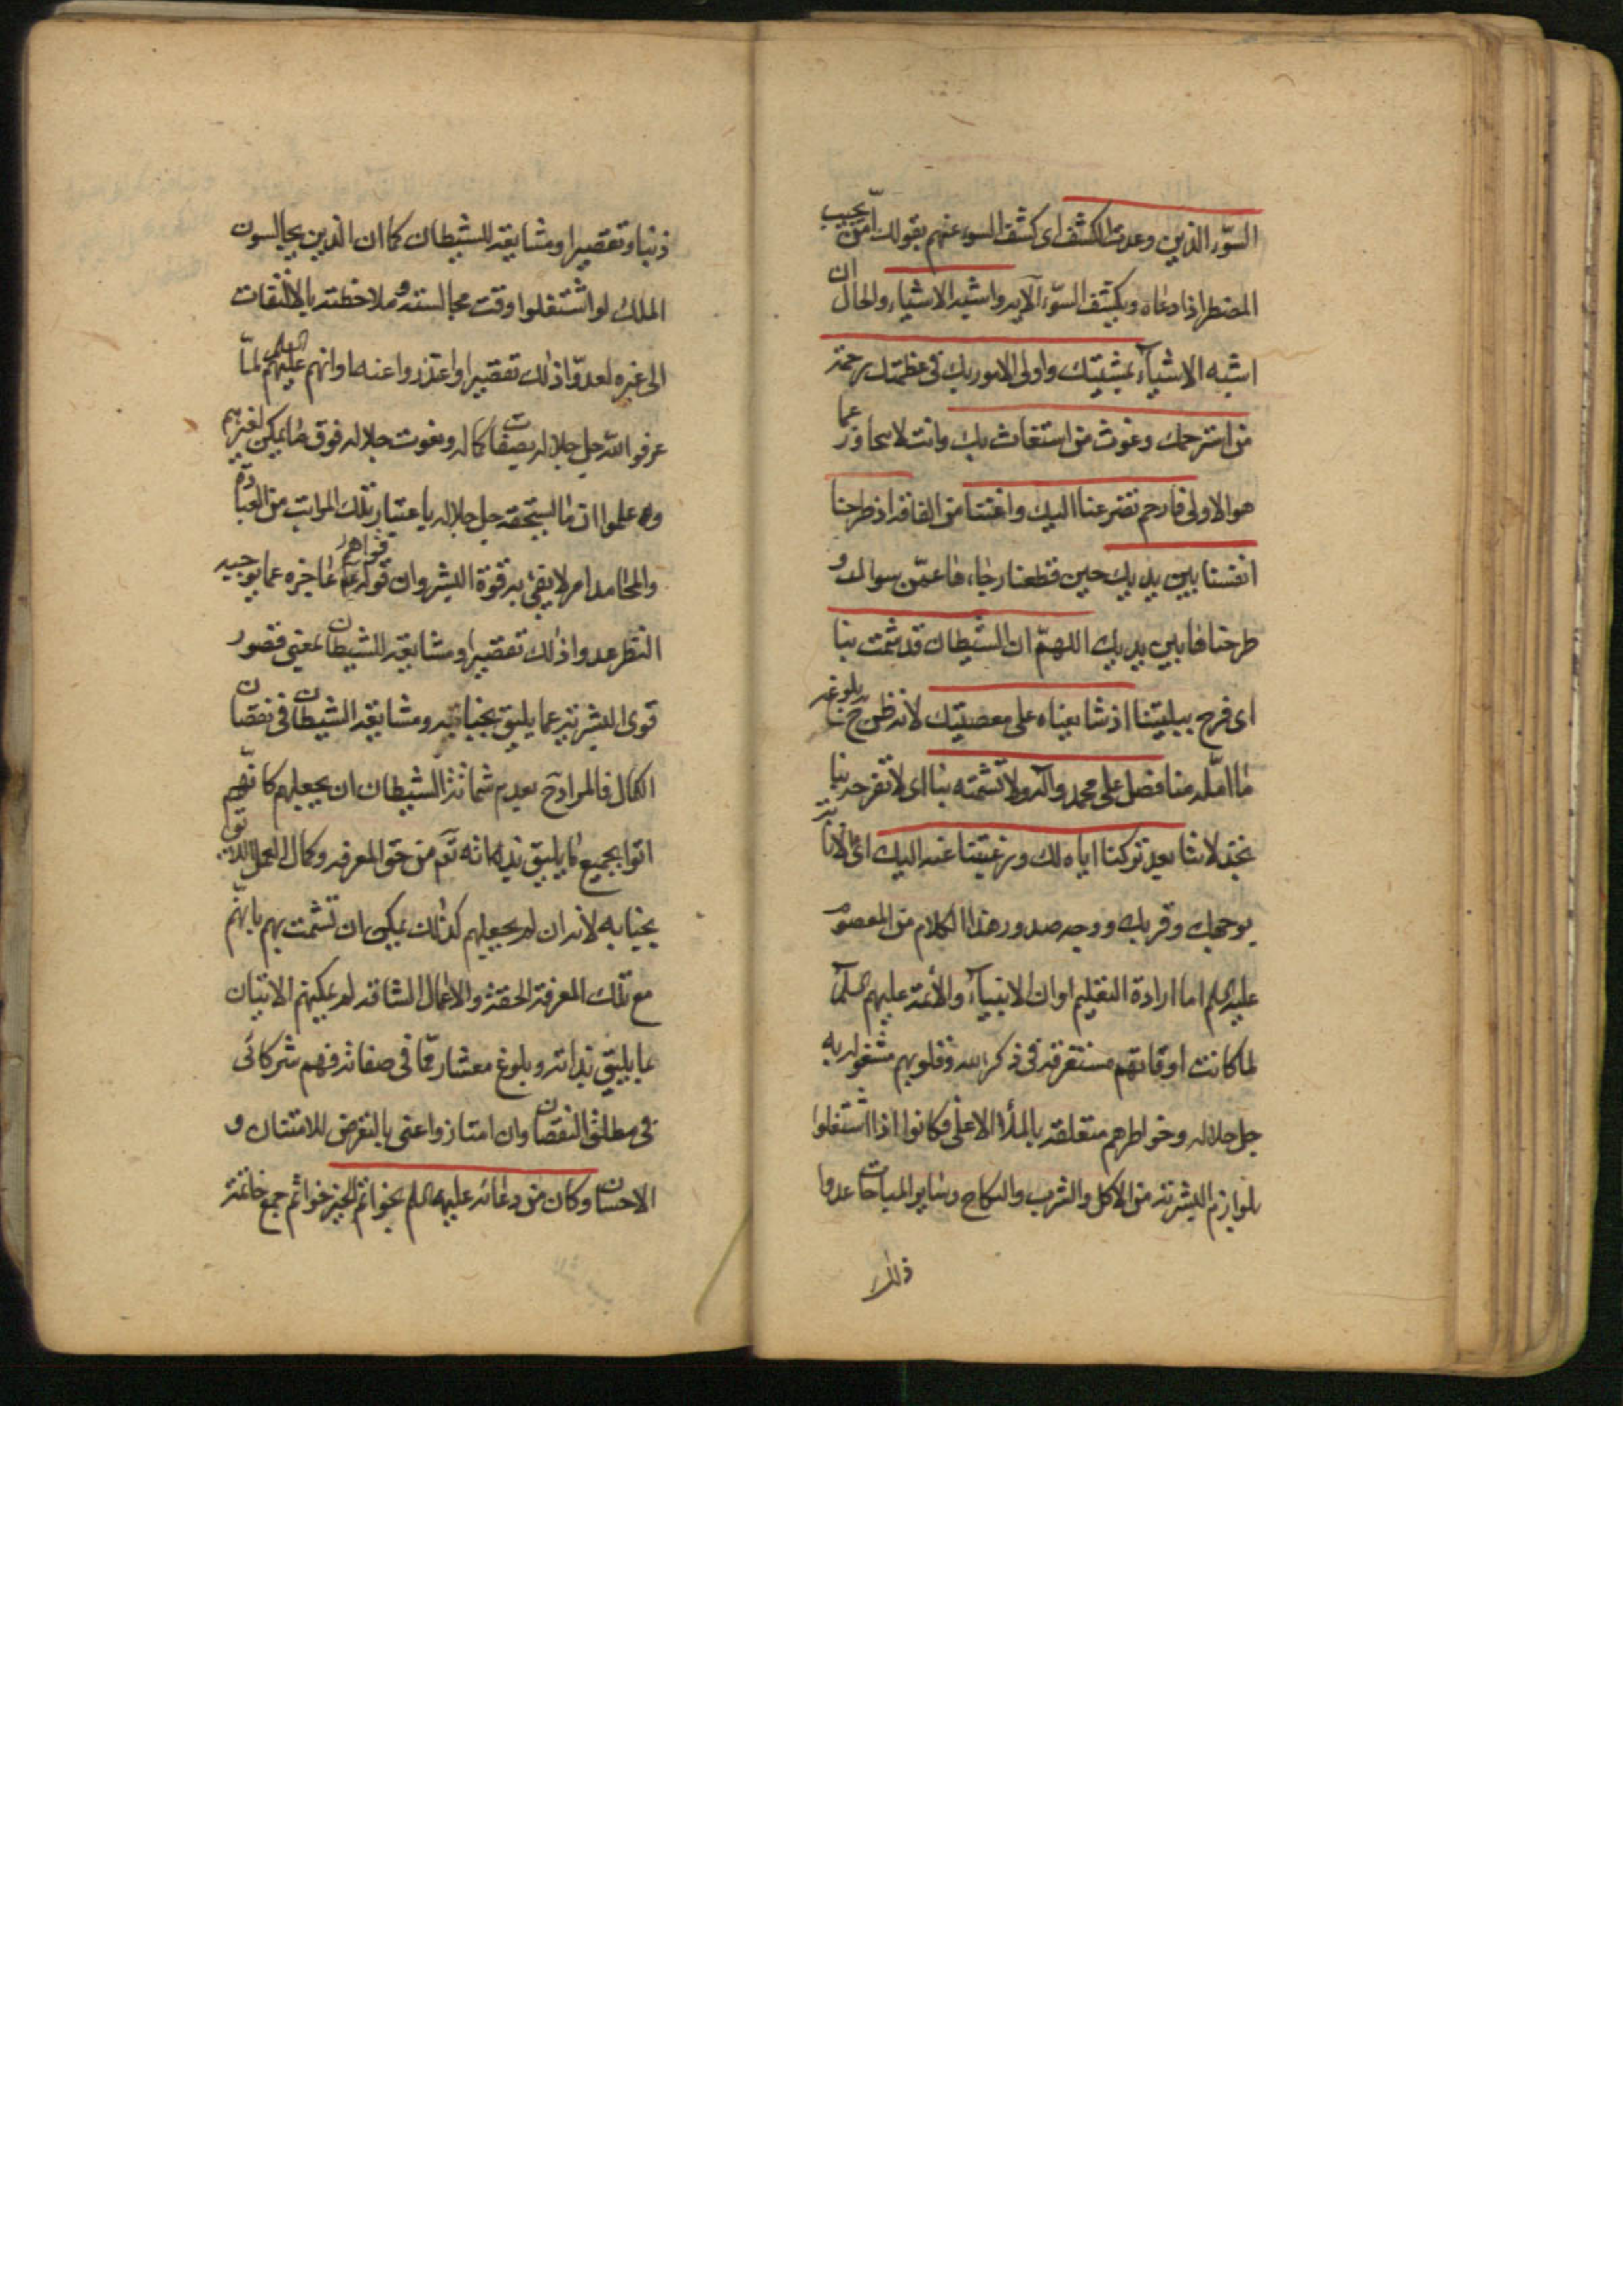 السوء الذين وعدت الكشف اى كشف السوء عنهم بقولك امن يجيب
المضطر اذا دعاه ويكشف السوء الآيه واشبه الاشياء والحال ان
اشبه الاشياء بمشيتك واولى الامور بك فى عظمتك رحمة
من استرحمك وغوث من استغاث بك وانت لا تجاوز عما
هو الاولى فارحم تضرعنا اليك واغثنا من الفاقه اذ طرحنا
انفسنا بين يديك حين قطعنا رجاءنا عمن سواك و
طرحناها بين يديك اللهم ان الشيطان قد شمت بنا
اى فرح ببليتنا اذ شايعناه على معصيتك لانه ظن ح بلوغه
ما امله منا فصل على محمد وآله ولا تشمته بنا اى لا تفرحه بنا
بعد تركنا اياه لك ورغبتنا عنه اليك اى الانابة
يوجهك وقربك ووجه صدور هذا الكلام من المعصوم
عليه السلم اما ارادة التعليم او ان الانبياء والأئمة عليهم السلم
لما كانت اوقاتهم مستغرقة فى ذكر الله وقلوبهم مشغولة به
جل جلاله وخواطرهم متعلقة بالملأ الاعلى فكانوا اذا اشتغلوا
بلوازم البشرية من الاكل والشرب والنكاح وسائر المباحات عدوا
ذلك
ذنبا وتقصيرا ومشايعة للشيطان كما ان الذين يجالسون
الملك لو اشتغلوا وقت مجالسته وملاحظته بالالتفات
الى غيره لعدوا ذلك تقصيرا واعتذروا عنه او انهم عليهم السلم لما
عرفوا الله جل جلاله بصفات كماله ونعوت جلاله فوق ما يمكن لغيرهم
وعلموا ان ما يستحقه جل جلاله باعتبار تلك المراتب من العبادة
والمحامد امر لا يفى به قوة البشر وان قواهم عاجزه عما يوجبه
النظر عدوا ذلك تقصيرا ومشايعة للشيطان بمعنى قصور
قوى البشرية عما يليق بجنابه ومشايعة الشيطان فى نقصان
الكمال فالمراد ح بعدم شماتة الشيطان ان يجعلهم كانهم
اتوا بجميع ما يليق بذاته تعم من حق المعرفه وكمال العمل اللائق
بجنابه لانه ان لم يجعلهم كذلك يمكن ان تشمت بهم بانهم
مع تلك المعرفة الحقة والاعمال الشاقه لم يمكنهم الاتيان
بما يليق بذاته وبلوغ معشار ما فى صفاته فهم شركائى
فى مطلق النقصان وان امتازوا عنى بالتعرض للامتنان و
الاحسان وكان من دعائه عليه السلم بخواتم الخير خواتم جمع خاتمة